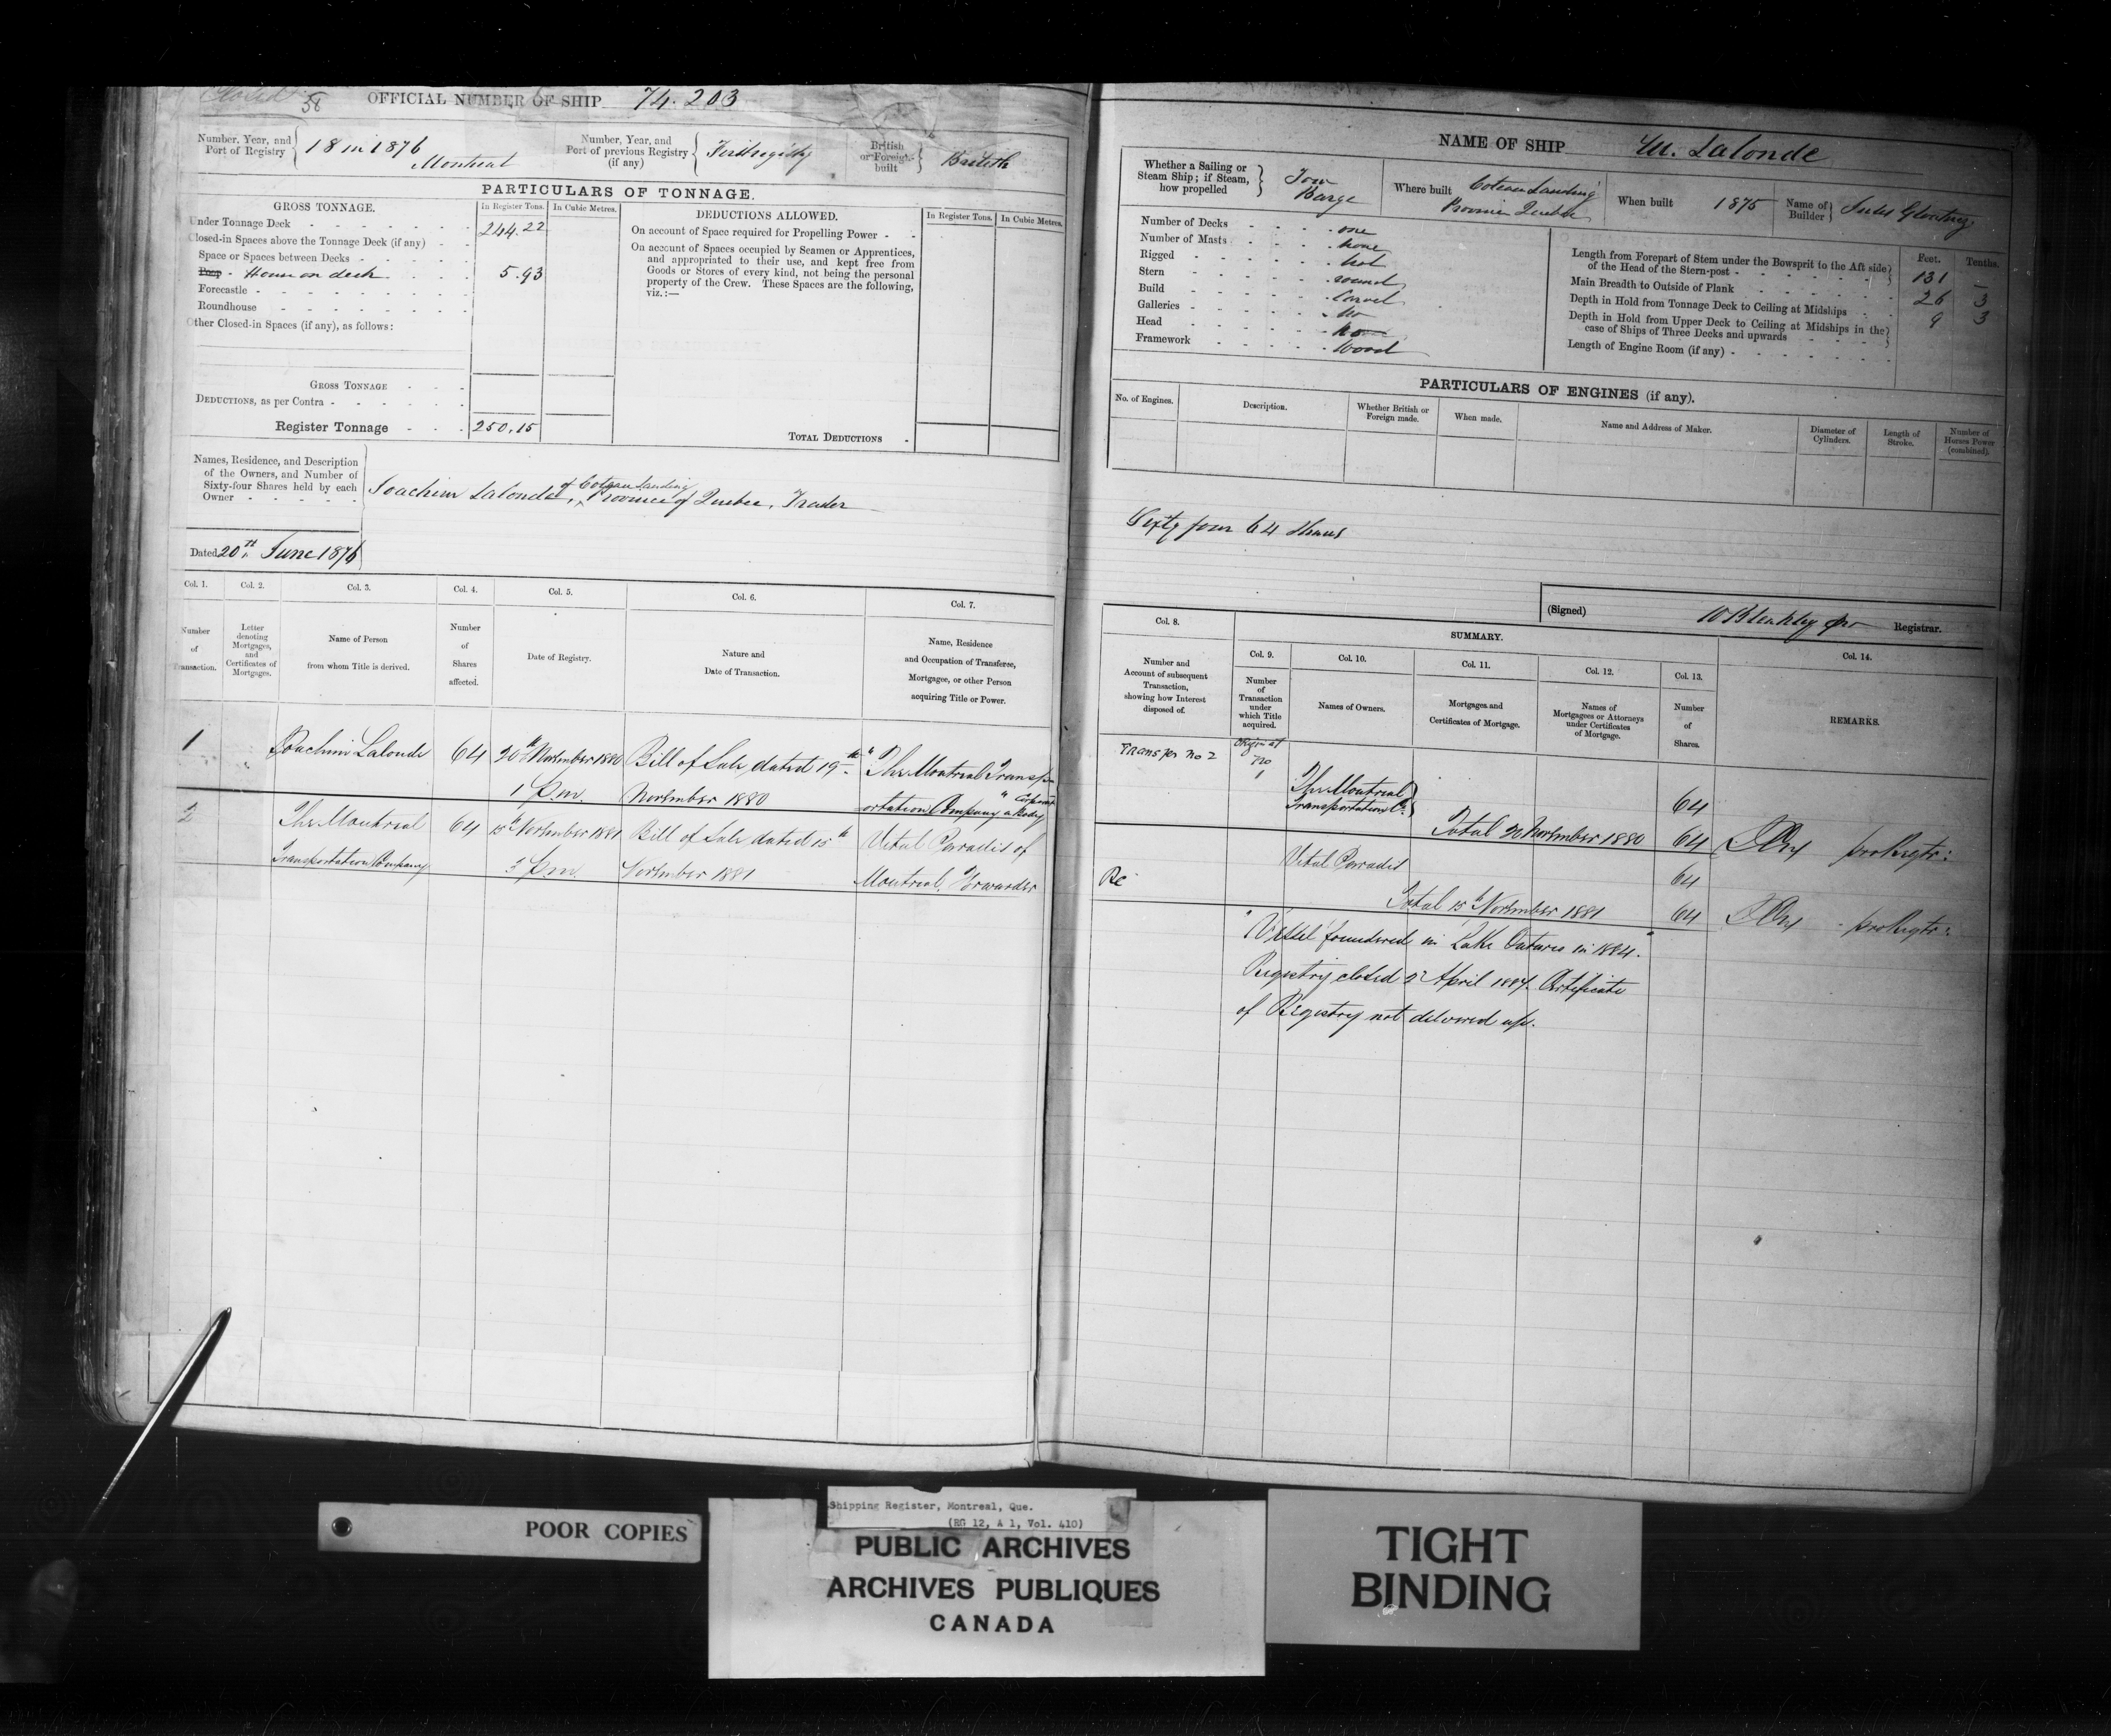 Closed 58 OFFICIAL NUMBER OF SHIP 74.203
Number, Year, and Port of Registry 18 in 1876 Montreal
Number, Year, and Port of previous Registry (if any) First registry
British or Foreign built British
PARTICULARS OF TONNAGE.
GROSS TONNAGE. In Register Tons. In Cubic Metres.
Under Tonnage Deck 244.22
Closed-in Spaces above the Tonnage Deck (if any)
Space or Spaces between Decks
Poop - House on deck 5.93
Forecastle
Roundhouse
Other Closed-in Spaces (if any), as follows:
GROSS TONNAGE
DEDUCTIONS, as per Contra
Register Tonnage 250.15
DEDUCTIONS ALLOWED. In Register Tons. In Cubic Metres.
On account of Space required for Propelling Power
On account of Spaces occupied by Seamen or Apprentices,
and appropriated to their use, and kept free from
Goods or Stores of every kind, not being the personal
property of the Crew. These Spaces are the following,
viz.:—
TOTAL DEDUCTIONS
Names, Residence, and Description
of the Owners, and Number of
Sixty-four Shares held by each
Owner
Joachim Lalonde, of Coteau Landing Province of Quebec, Trader
Dated 20th June 1876
Col. 1. Col. 2. Col. 3. Col. 4. Col. 5. Col. 6. Col. 7.
Number of Transaction.
Letter denoting Mortgages, and Certificates of Mortgages.
Name of Person from whom Title is derived.
Number of Shares affected.
Date of Registry.
Nature and Date of Transaction.
Name, Residence and Occupation of Transferee, Mortgagee, or other Person acquiring Title or Power.
1 Joachim Lalonde 64 20th November 1880 Bill of Sale dated 19th "The Montreal Transp
1 P.m. November 1880 ortation Company" a Body Corporate
2 The Montreal 64 15th November 1881 Bill of Sale dated 15th Vital Paradis of
Transportation Company 3 P.m. November 1881 Montreal, Forwarder
NAME OF SHIP M. Lalonde
Whether a Sailing or Steam Ship; if Steam, how propelled Tow Barge
Where built Coteau Landing Province Quebec
When built 1875
Name of Builder Jules
Number of Decks one
Number of Masts none
Rigged not
Stern round
Build Carvel
Galleries no
Head no
Framework Wood
Feet. Tenths.
Length from Forepart of Stem under the Bowsprit to the Aft side of the Head of the Stern-post 131 –
Main Breadth to Outside of Plank 26 3
Depth in Hold from Tonnage Deck to Ceiling at Midships 9 3
Depth in Hold from Upper Deck to Ceiling at Midships in the case of Ships of Three Decks and upwards
Length of Engine Room (if any)
PARTICULARS OF ENGINES (if any).
No. of Engines. Description. Whether British or Foreign made. When made. Name and Address of Maker. Diameter of Cylinders. Length of Stroke. Number of Horses Power (combined).
Sixty four 64 Shares
(Signed) W Bleakley pro Registrar.
Col. 8. SUMMARY. Col. 14.
Col. 9. Col. 10. Col. 11. Col. 12. Col. 13.
Number and Account of subsequent Transaction, showing how Interest disposed of.
Number of Transaction under which Title acquired.
Names of Owners.
Mortgages and Certificates of Mortgage.
Names of Mortgagees or Attorneys under Certificates of Mortgage.
Number of Shares.
REMARKS.
Transfer no 2 no 1 The Montreal
Transportation Co. 64
Total 20 November 1880 64 pro Regtr:
Vital Paradis 64
Re
Total 15th November 1881 64 pro Regtr:
"Vessel foundered in Lake Ontario in 1884."
Registry closed 2 April 1887. Certificate
of Registry not delivered up.
POOR COPIES
Shipping Register, Montreal, Que.
(RG 12, A 1, Vol. 410)
PUBLIC ARCHIVES
ARCHIVES PUBLIQUES
CANADA
TIGHT
BINDING